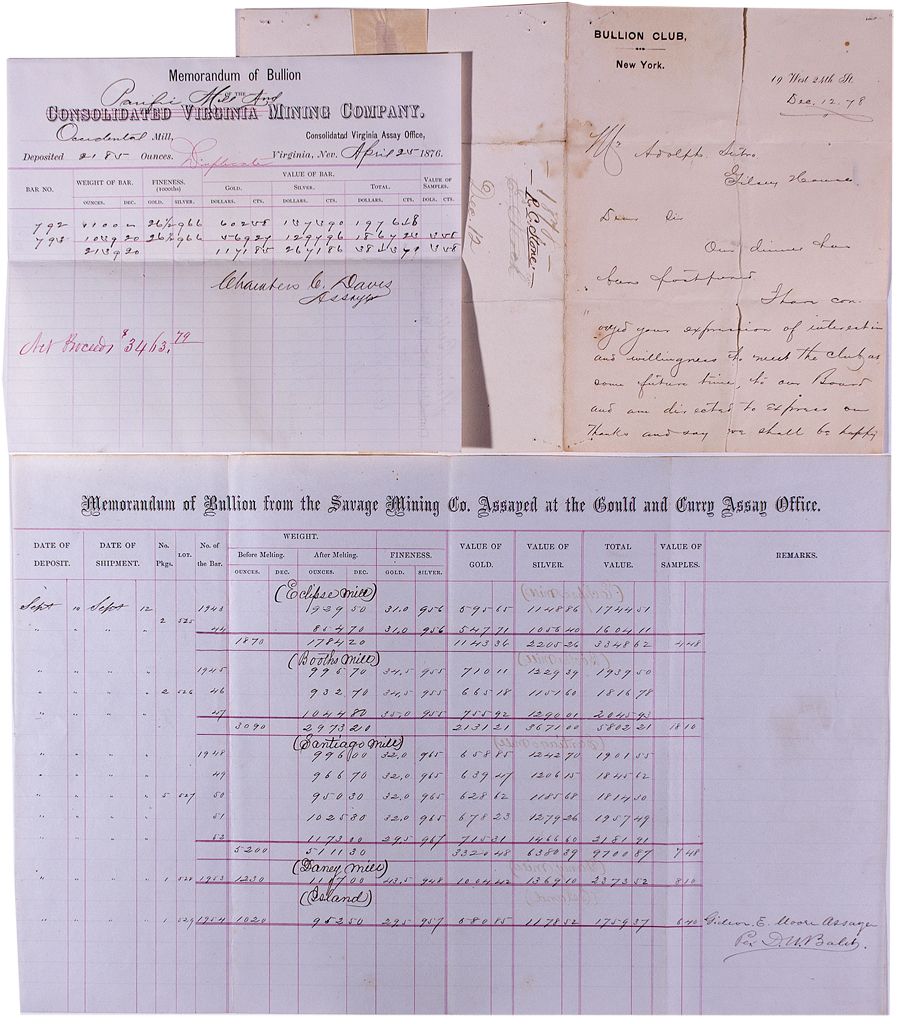 Memorandum of Bullion
OF THE
Pacific Mill And
CONSOLIDATED VIRGINIA MINING COMPANY.
Occidental Mill,
Consolidated Virginia Assay Office,
Deposited 2185 Ounces. Duplicate Virginia, Nev. April 25 1876.
BAR NO. WEIGHT OF BAR. FINENESS. (1000ths) VALUE OF BAR. VALUE OF SAMPLES.
GOLD. SILVER. TOTAL.
OUNCES. DEC. GOLD. SILVER. DOLLARS. CTS. DOLLARS. CTS. DOLLARS. CTS. DOLS. CTS.
792 26½ 966
793 26½ 966 3 58
3 58
Assayer
Net Proceeds $3463.79
BULLION CLUB,
New York.
19 West 24th St.
Dec. 12. 78
Mr Adolph Sutro
Gilsey House
Dear Sir
Our dinner has
been postponed
I have con-
veyed your expression of interest in
and willingness to meet the club at
some future time, to our Board
and am directed to express our
thanks and say we shall be happy
Dec 12
Memorandum of Bullion from the Savage Mining Co. Assayed at the Gould and Curry Assay Office.
DATE OF DEPOSIT. DATE OF SHIPMENT. No. Pkgs. LOT. No. of the Bar. WEIGHT. FINENESS. VALUE OF GOLD. VALUE OF SILVER. TOTAL VALUE. VALUE OF SAMPLES. REMARKS.
Before Melting. After Melting.
OUNCES. DEC. OUNCES. DEC. GOLD. SILVER.
(Eclipse Mill)
Sept 10 Sept 12 1943 929 50 31.0 956 595 65 1148 86 1744 51
" " " " 2 525 44 854 70 31.0 956 547 71 1056 40 1604 11
1870 1784 20 1143 36 2205 26 3348 62 4 48
(Booths Mill)
" " " " 1945 995 70 34.5 955 710 11 1229 39 1939 50
" " " " 2 526 46 932 70 34.5 955 665 18 1151 60 1816 78
" " " " 47 1044 80 35.0 955 755 92 1290 01 2045 93
3090 2973 20 2131 21 3671 00 5802 21 18 10
(Santiago Mill)
" " " " 1948 996 00 32.0 965 658 85 1242 70 1901 55
" " " " 49 966 70 32.0 965 639 47 1206 15 1845 62
" " " " 5 527 50 950 30 32.0 965 628 62 1185 68 1814 30
" " " " 51 1025 30 32.0 965 678 23 1279 26 1957 49
" " " " 52 1173 00 29.5 967 715 31 1466 60 2181 91
5200 5111 30 3320 48 6380 39 9700 87 7 48
(Daney Mill)
" " " " 1 528 1953 1230 948 1004 42 1369 10 2373 52
(Island)
" " " " 1 529 1954 1020 952 50 29.5 957 580 85 1178 52 1759 37 6 40 Gideon E. Moore Assayer
Per D.W. Balch.